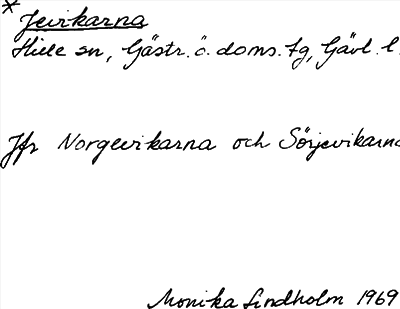 * Jevikarna
Hille sn, Gästr. ö. doms. tg, Gävl. l.
Jfr Norgevikarna och Sörjevikarna
Monika Lindholm 1969